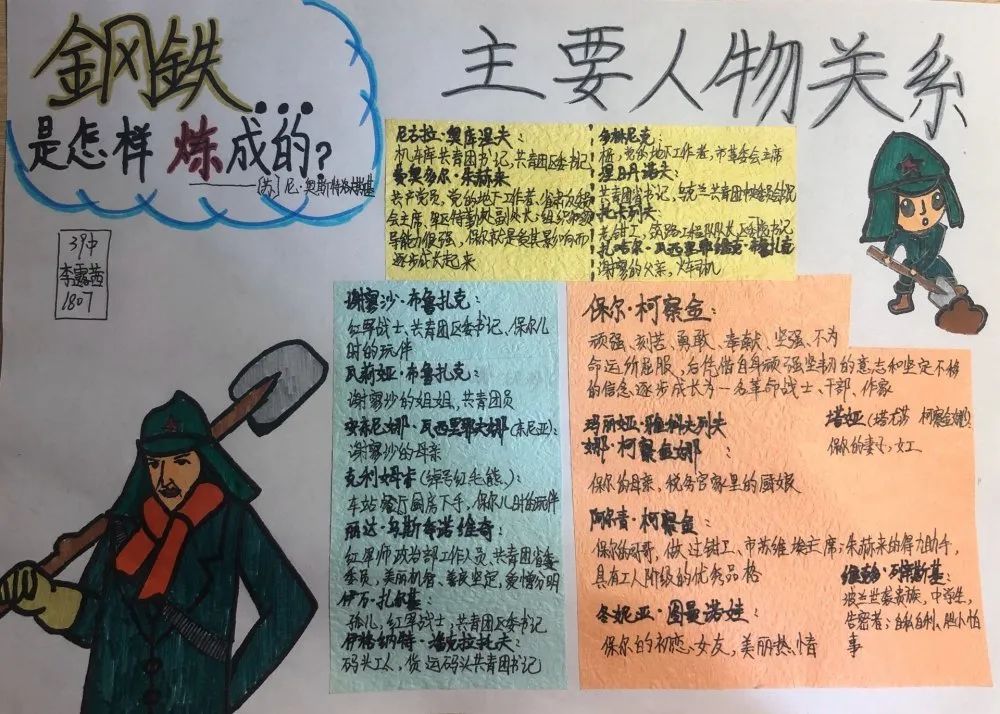 钢鉄...
是怎样炼成的?
——[苏]尼·奥斯特洛夫斯基
主要人物关系
39中
李露茜
1807
尼古拉·奥库涅夫:
机车库共青团书记,共青团区委书记
费奥多尔·朱赫来
共产党员,党的地下工作者,省肃反委员
会主席,军区特勤处副处长;组织和领
导能力很强,保尔就是受其影响而
逐步成长起来
多林尼克:
木匠,党的地下工作者,市革委会主席
涅日丹诺夫:
托卡列夫:
老钳工,筑路工程队队长,区委书记
扎哈尔·瓦西里耶维奇·布鲁扎克
谢廖沙的父亲,火车司机
谢廖沙·布鲁扎克:
红军战士、共青团区委书记、保尔儿
时的玩伴
瓦莉娅·布鲁扎克:
谢廖沙的姐姐,共青团员
安东尼娜·瓦西里耶夫娜(东尼亚):
谢廖沙的母亲
克利姆卡(绰号红毛熊):
车站餐厅厨房下手,保尔儿时的玩伴
丽达·乌斯季诺维奇:
红军师政治部工作人员、共青团省委
委员,美丽机智、善良坚定,爱憎分明
伊万·扎尔基
孤儿,红军战士;共青团区委书记
伊格纳特·潘克拉托夫:
码头工人,货运码头共青团书记
保尔·柯察金:
顽强、刻苦、勇敢、奉献、坚强、不为
命运所屈服,后凭借自身顽强坚韧的意志和坚定不移
的信念逐步成长为一名革命战士、干部、作家
玛丽娅·雅科夫列夫
娜·柯察金娜:
保尔的母亲,税务官家里的厨娘
塔娅(塔尤莎 柯察金娜):
保尔的妻子,女工
阿尔青·柯察金:
保尔的哥哥,做过钳工、市苏维埃主席;朱赫来的得力助手,
具有工人阶级的优秀品格
冬妮亚·图曼诺娃:
保尔的初恋女友,美丽热情
维克多·列辛斯基:
波兰世袭贵族,中学生,
告密者;自私自利、胆小怕
事